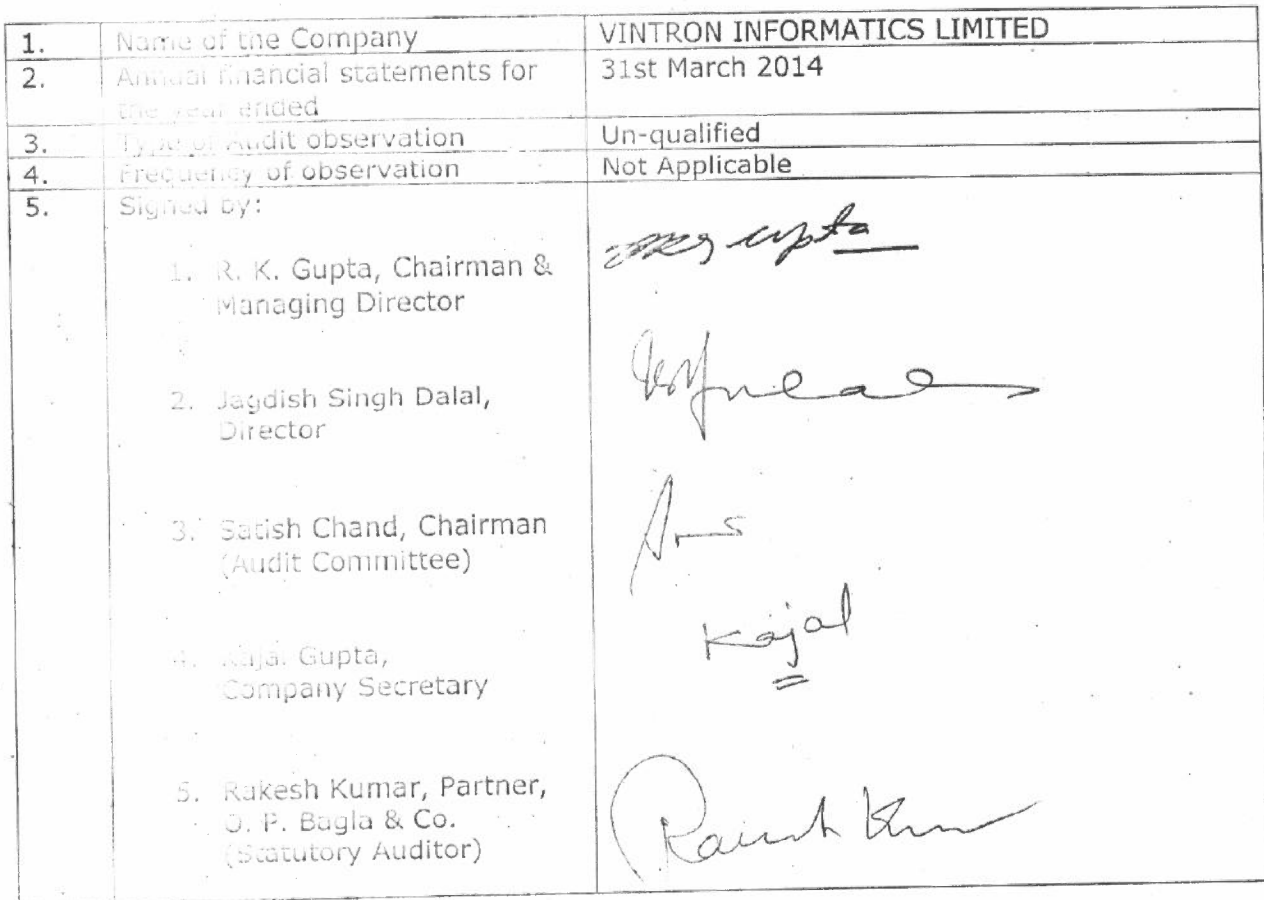 1. Name of the Company VINTRON INFORMATICS LIMITED
2. Annual financial statements for 31st March 2014
the year ended
3. Type of Audit observation Un-qualified
4. Frequency of observation Not Applicable
5. Signed by:
1. R. K. Gupta, Chairman &
Managing Director
2. Jagdish Singh Dalal,
Director
3. Satish Chand, Chairman
(Audit Committee)
Kajal
4. Kajal Gupta,
Company Secretary
5. Rakesh Kumar, Partner,
O. P. Bagla & Co.
(Statutory Auditor)